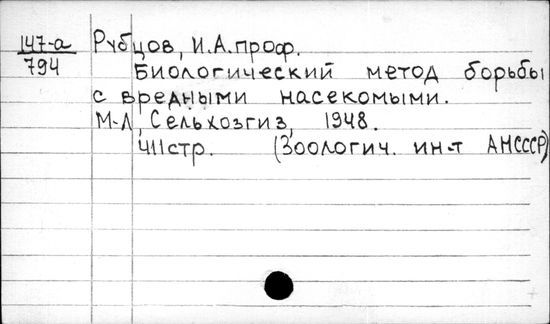 147-а Рубцов, И.А. проф.
794
Биологический метод борьбы
с вредными насекомыми.
М-Л, Сельхозгиз, 1948.
411стр. (Зоологич. ин-т АНСССР)